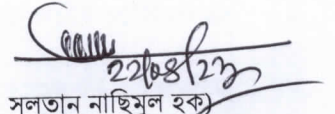 22/08/23
সলতান নাছিমুল হক)